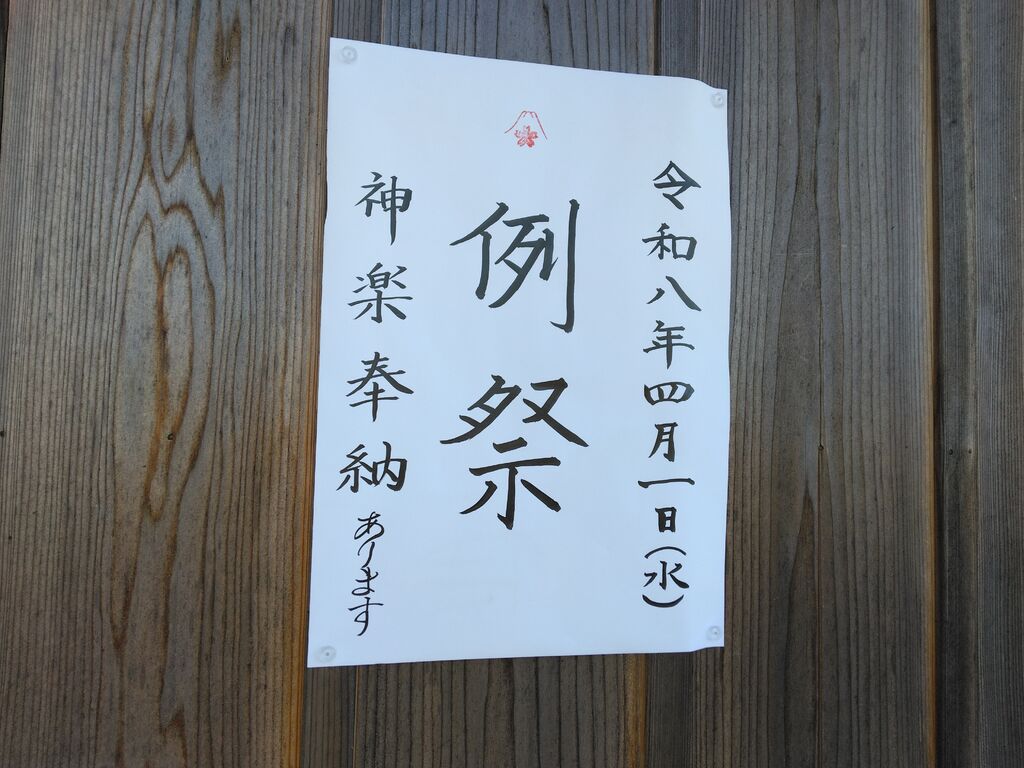 令和八年四月一日(水)
例祭
神楽奉納あります